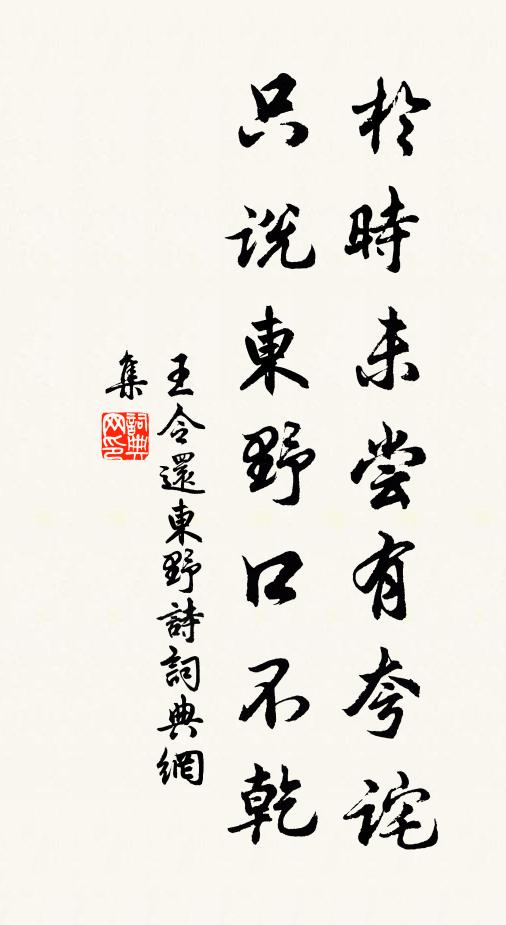 於時未尝有夸詫
只說東野口不乾
王令還東野詩詞典網
集
詞典
网印